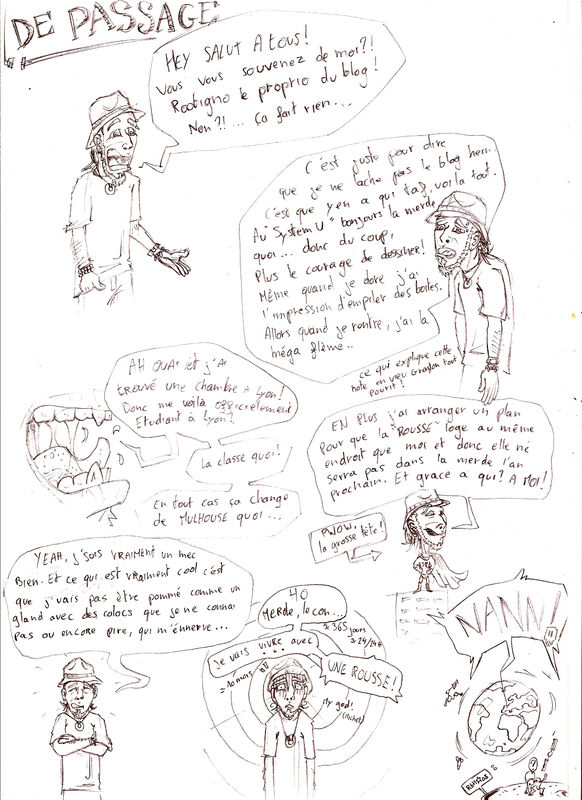 DE PASSAGE
HEY SALUT A tous!
Vous vous souvenez de moi?!
Rodrigno le proprio du blog!
Non?!... ça fait rien...
C'est juste pour dire
que je ne lache pas le blog hein.
C'est que y'en a qui taf, voila tout.
Au "System U" bonjours la merde
quoi... donc du coup,
Plus le courage de dessiner!
Même quand je dore j'ai
l'impression d'empiler des boites.
Allors quand je rentre, j'ai la
méga flème..
ce qui explique cette
note en vieu Graylon tout
pourrit!
AH OUAI et j'ai
trouvé une chambre a Lyon!
Donc me voilà officielement
Etudiant à Lyon!
La classe quoi!
En tout cas ça change
de MULHOUSE quoi...
EN Plus j'ai arranger un plan
Pour que la "ROUSSE" loge au même
endroit que moi et donc elle ne
serra pas dans la merde l'an
prochain. Et grace a qui? A MOI!
PWOW,
la grosse tête!
YEAH, j'suis VRAIMENT un mec
Bien. Et ce qui est vraiment cool c'est
que j'vais pas être pommé comme un
gland avec des colocs que je ne connai
pas ou encore pire, qui m'énnerve...
Merde, le con...
≈ 365 jours
≈ 24/24H
Je vais vivre avec
...
≈ 10 mois
UNE ROUSSE!
My god!
NANN!